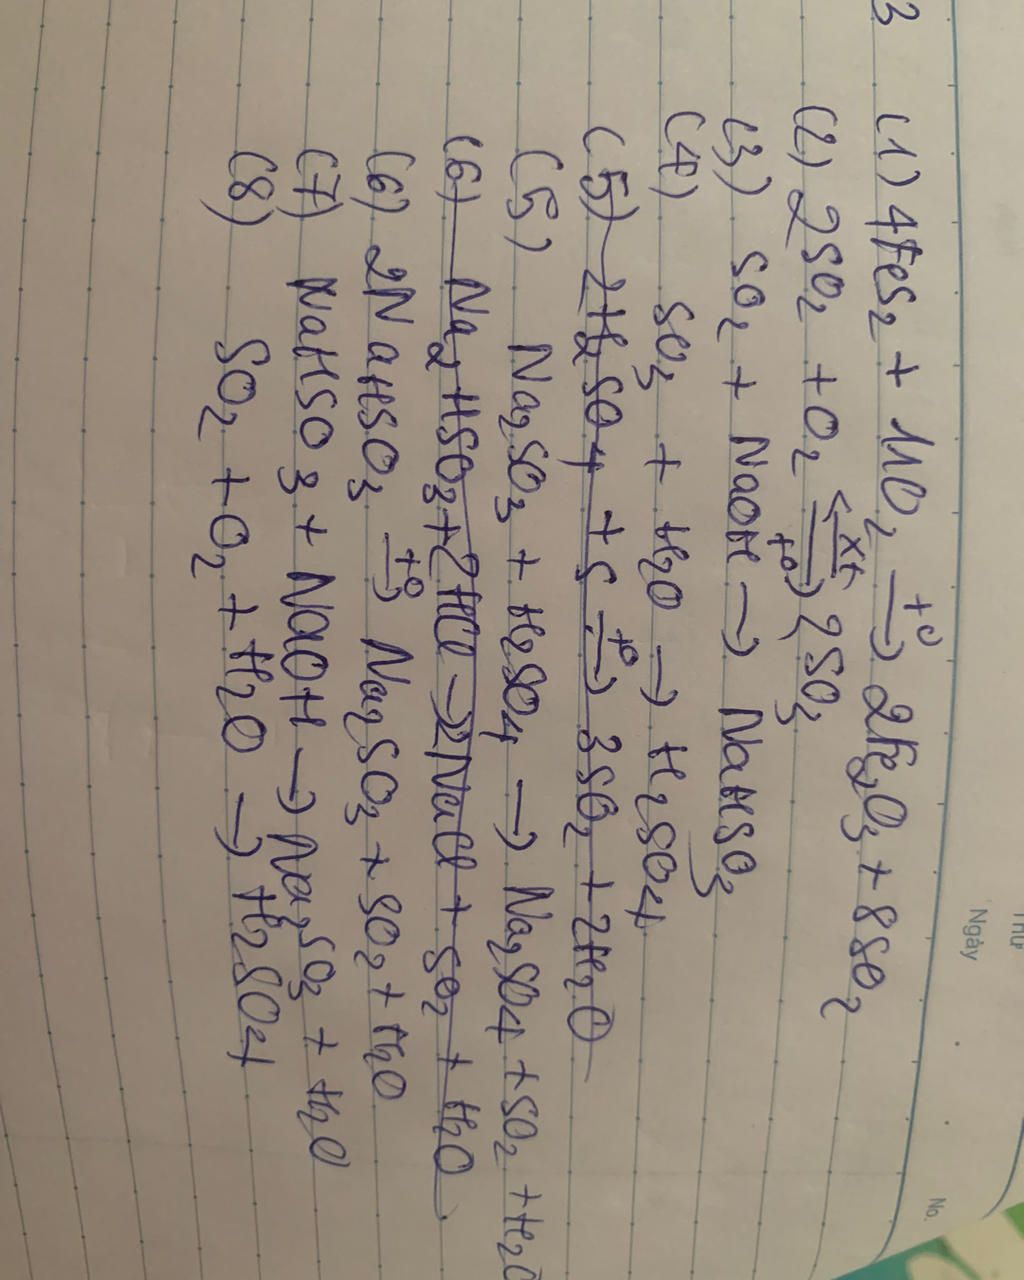 Thứ
Ngày
No.
3 (1) 4FeS2 + 11O2 t°→ 2Fe2O3 + 8SO2
(2) 2SO2 + O2 xt⇌t° 2SO3
(3) SO2 + NaOH → NaHSO3
(4) SO3 + H2O → H2SO4
(5) 2H2SO4 + S t°→ 3SO2 + 2H2O
(5) Na2SO3 + H2SO4 → Na2SO4 + SO2 + H2O
(6) Na2HSO3 + 2HCl → 2NaCl + SO2 + H2O
(6) 2NaHSO3 t°→ Na2SO3 + SO2 + H2O
(7) NaHSO3 + NaOH → Na2SO3 + H2O
(8) SO2 + O2 + H2O → H2SO4